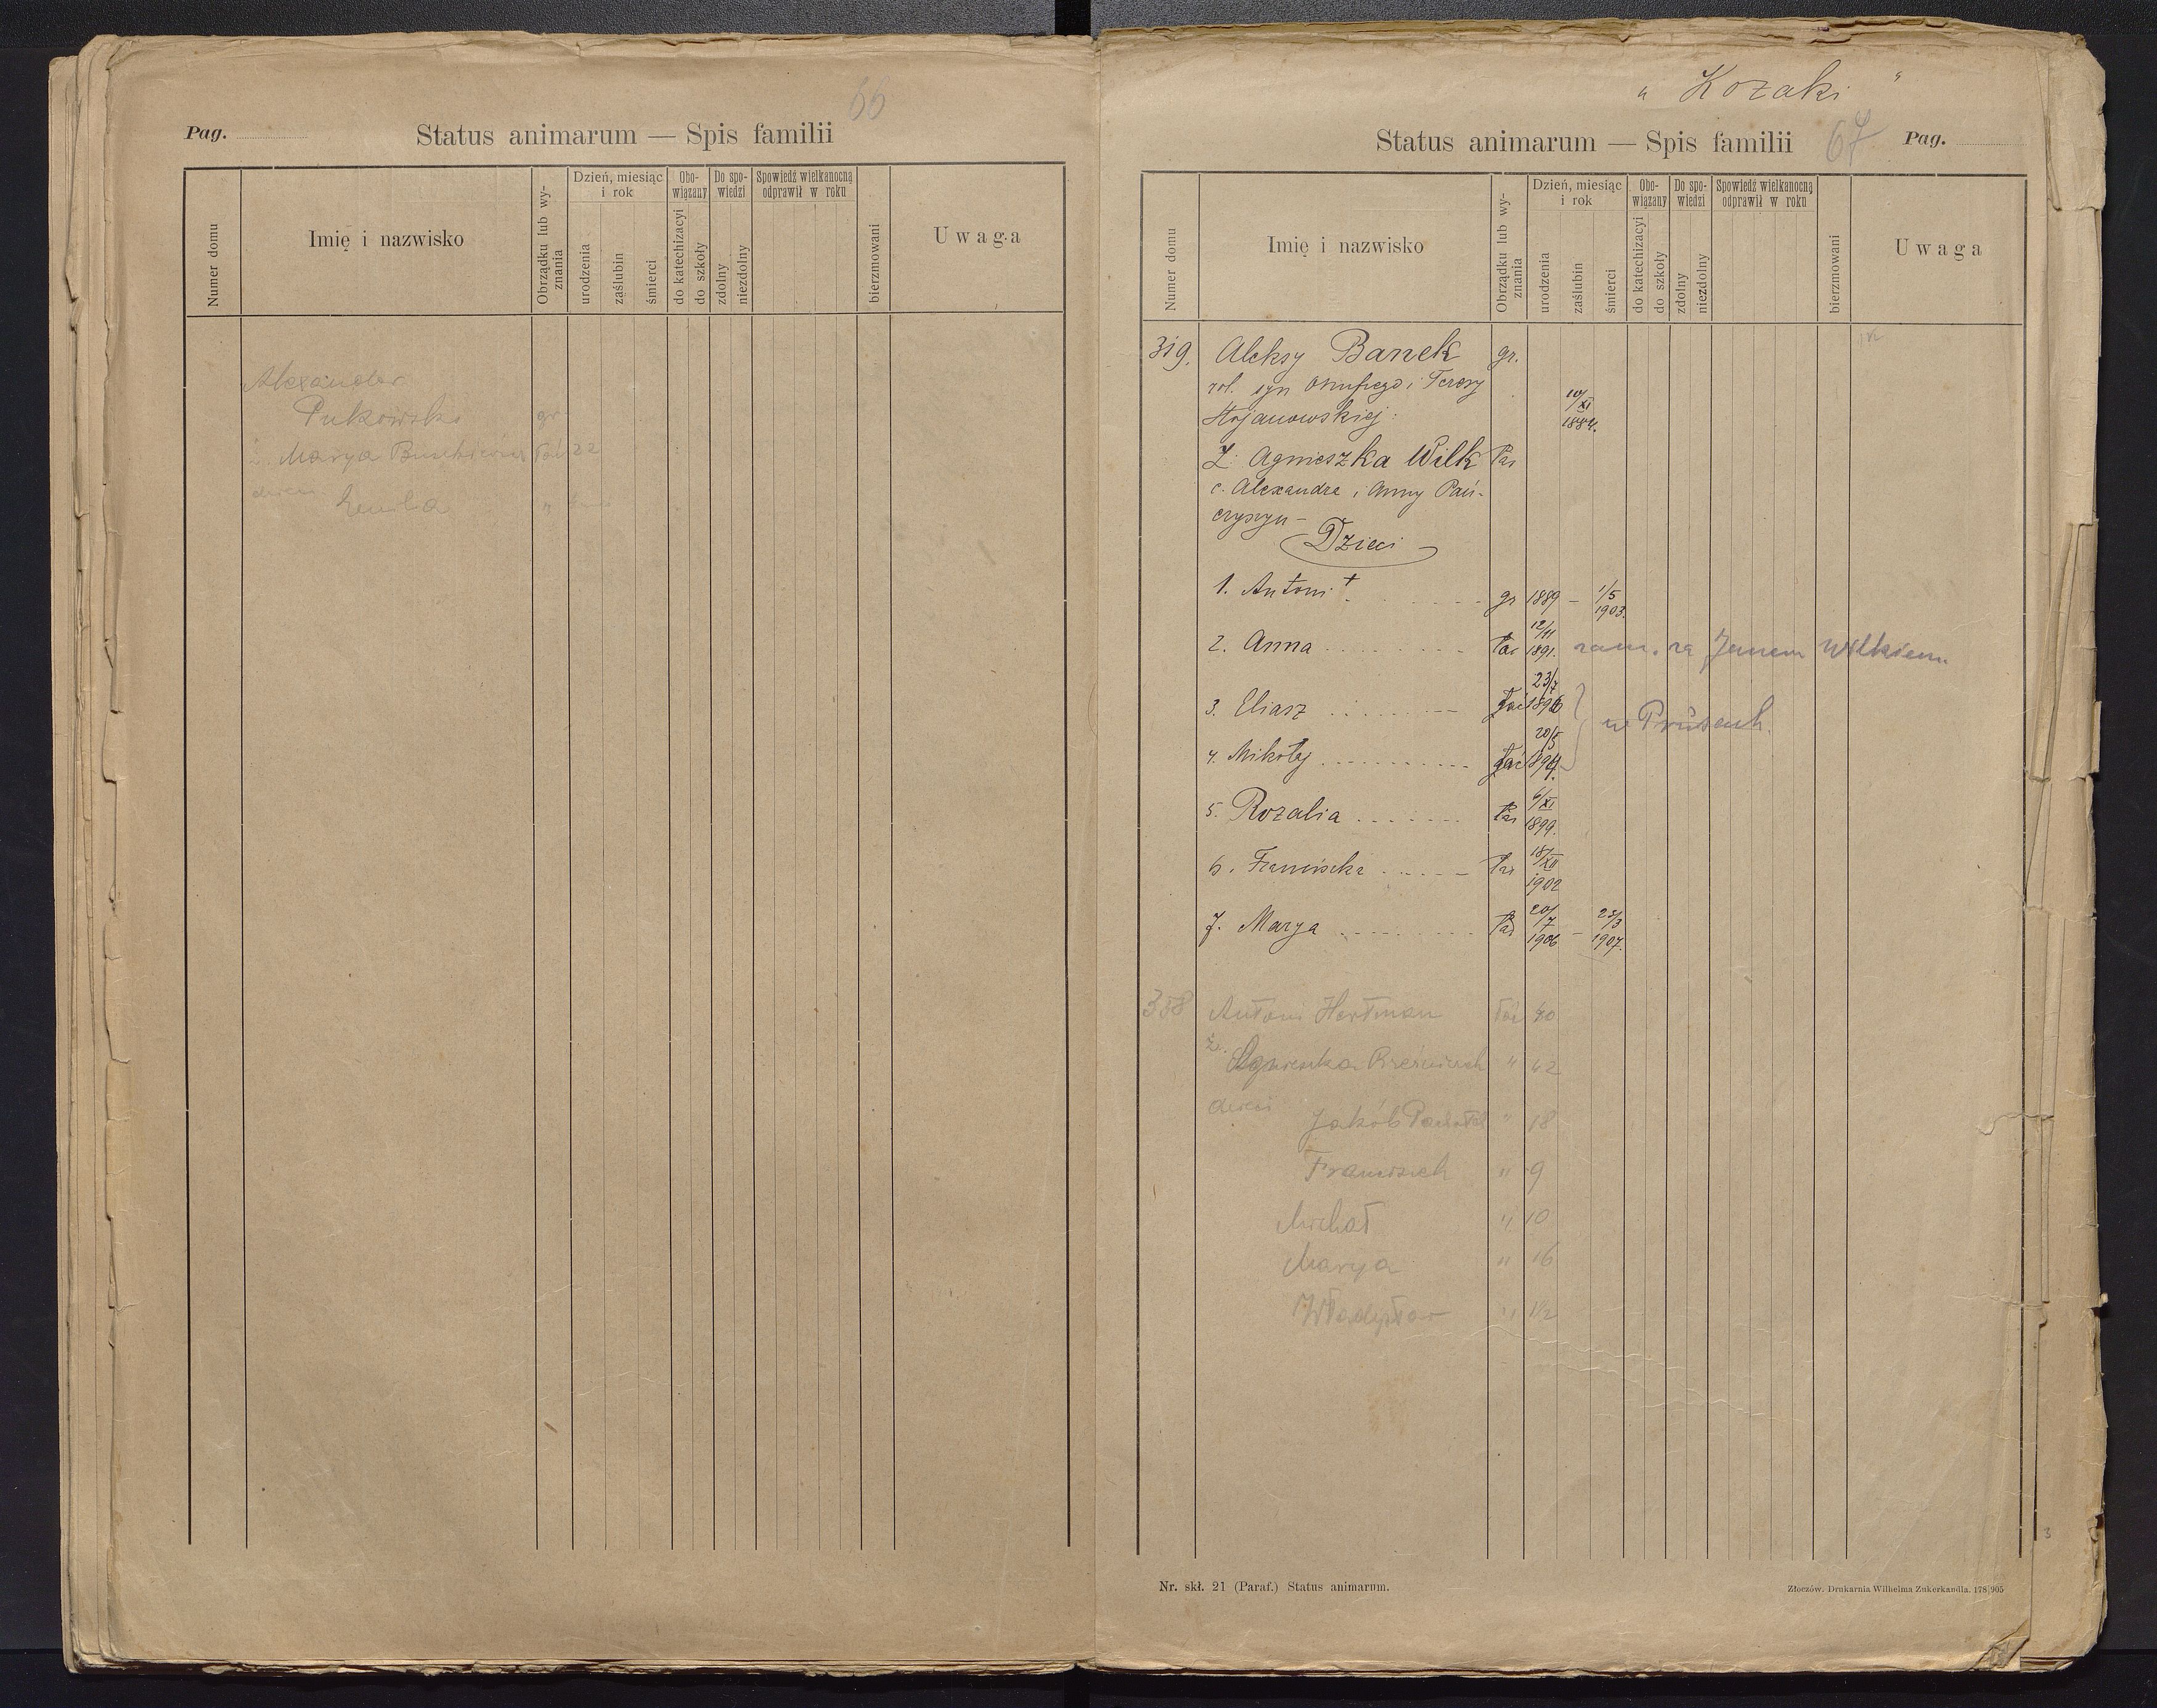 66
Pag.
Status animarum — Spis familii
Numer domu
Imię i nazwisko
Obrządku lub wy-
znania
Dzień, miesiąc
i rok
urodzenia
zaślubin
śmierci
Obo-
wiązany
do katechizacyi
do szkoły
Do spo-
wiedzi
zdolny
niezdolny
Spowiedź wielkanocną
odprawił w roku
bierzmowani
Uwaga
Alexander
gr
ż. Marya łać 22
dzieci
"
" Kozaki "
Status animarum — Spis familii 67 Pag.
Numer domu
Imię i nazwisko
Obrządku lub wy-
znania
Dzień, miesiąc
i rok
urodzenia
zaślubin
śmierci
Obo-
wiązany
do katechizacyi
do szkoły
Do spo-
wiedzi
zdolny
niezdolny
Spowiedź wielkanocną
odprawił w roku
bierzmowani
Uwaga
319. Aleksy Banek gr.
rol. syn Onufrego i Teresy 10/XI
Stojanowskiej: 1884.
Ż: Agnieszka Wilk łac
c. Alexandra i Anny Pań-
czyszyn –
Dzieci
1. Antoni + gr 1889 – 1/5 1903.
2. Anna łac 12/11 1891. zam. za Janem Wilkiem
3. Eliasz 23/7
4. Mikołaj w Prusach.
5. Rozalia łac 6/XI 1899.
6. Franciszka łac 18/XII 1902
7. Marya łac 20/7 1906 – 25/3 1907.
358 Antoni Hartman łać 40
ż. Agnieszka " 42
dzieci Jakób " 18
Franciszek " 9
Michał " 10
Marya " 16
Władysław " 1½
Nr. skł. 21 (Paraf.) Status animarum.
Złoczów. Drukarnia Wilhelma Zukerkandla. 178|905
3